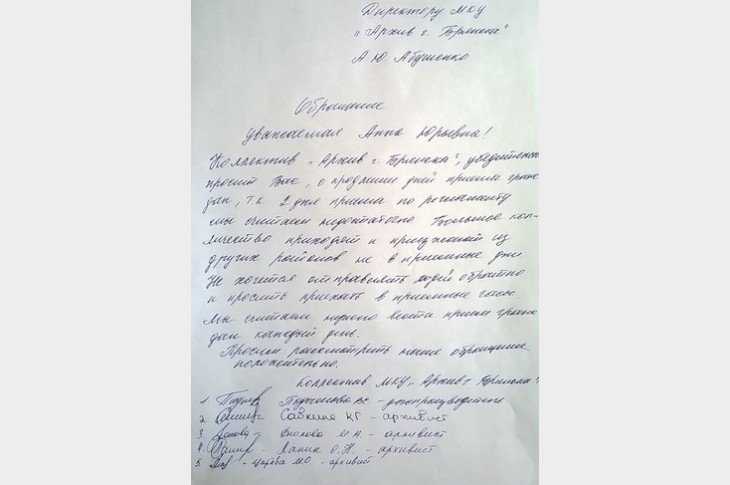 Директору МКУ
"Архив г. Брянска"
А Ю Абушенко
Обращение
Уважаемая Анна Юрьевна!
Коллектив "Архив г. Брянска", убедительно
просит Вас, о продлении дней приема граж
дан, т.к. 2 дня приема по регламенту
мы считаем недостаточно Большое кол-
личество приходят и приезжают из
других районов не в приемные дни
Не хочется отправлять людей обратно
и просить приехать в приемные часы
Мы считаем нужного вести прием граж
дан каждый день.
Просим рассмотреть наше обращение
положительно.
Коллектив МКУ "Архив г Брянска"
1. - делопроизводитель
2. КГ - архивист
3. - архивист
4. О.Н. - архивист
5. МО - архивист